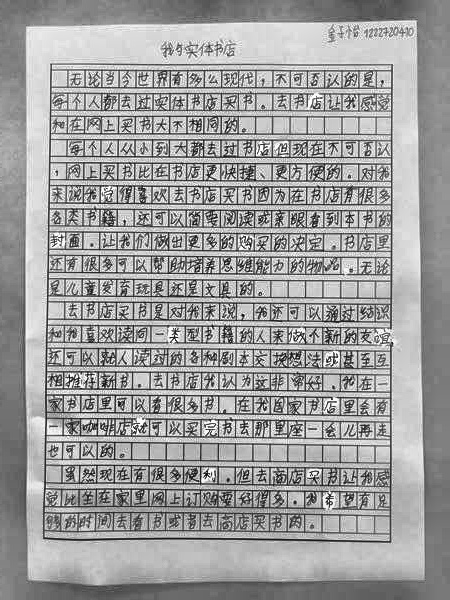 金子怡 1222720410
我与实体书店
无论当今世界有多么现代,不可否认的是,
每个人都去过实体书店买书。去书店让我感觉
和在网上买书大不相同的。
每个人从小到大都去过书店但现在不可否认
,网上买书比在书店更快捷、更方便的。对我
来说我觉得喜欢去书店买书因为在书店有很多
各类书籍,还可以简要阅读或亲眼看到本书的
封面。让我们做出更多的购买的决定。书店里
还有很多可以赞助培养思维能力的物品。无论
是儿童发育玩具还是文具的。
去书店买书是对我来说,我还可以通过结识
和我喜欢读同一类型书籍的人来做个新的友谊,
还可以和人读过的各种剧本交换想法或甚至互
相推荐新书。去书店我认为这非常好。我在一
家书店里可以看很多书。在我国家书店里会有
一家咖啡店就可以买完书去那里座一会儿再走
也可以的。
虽然现在有很多便利。但去商店买书让我感
觉比坐在家里网上订购要好得多。我希望有足
够的时间去看书或者去商店买书的。